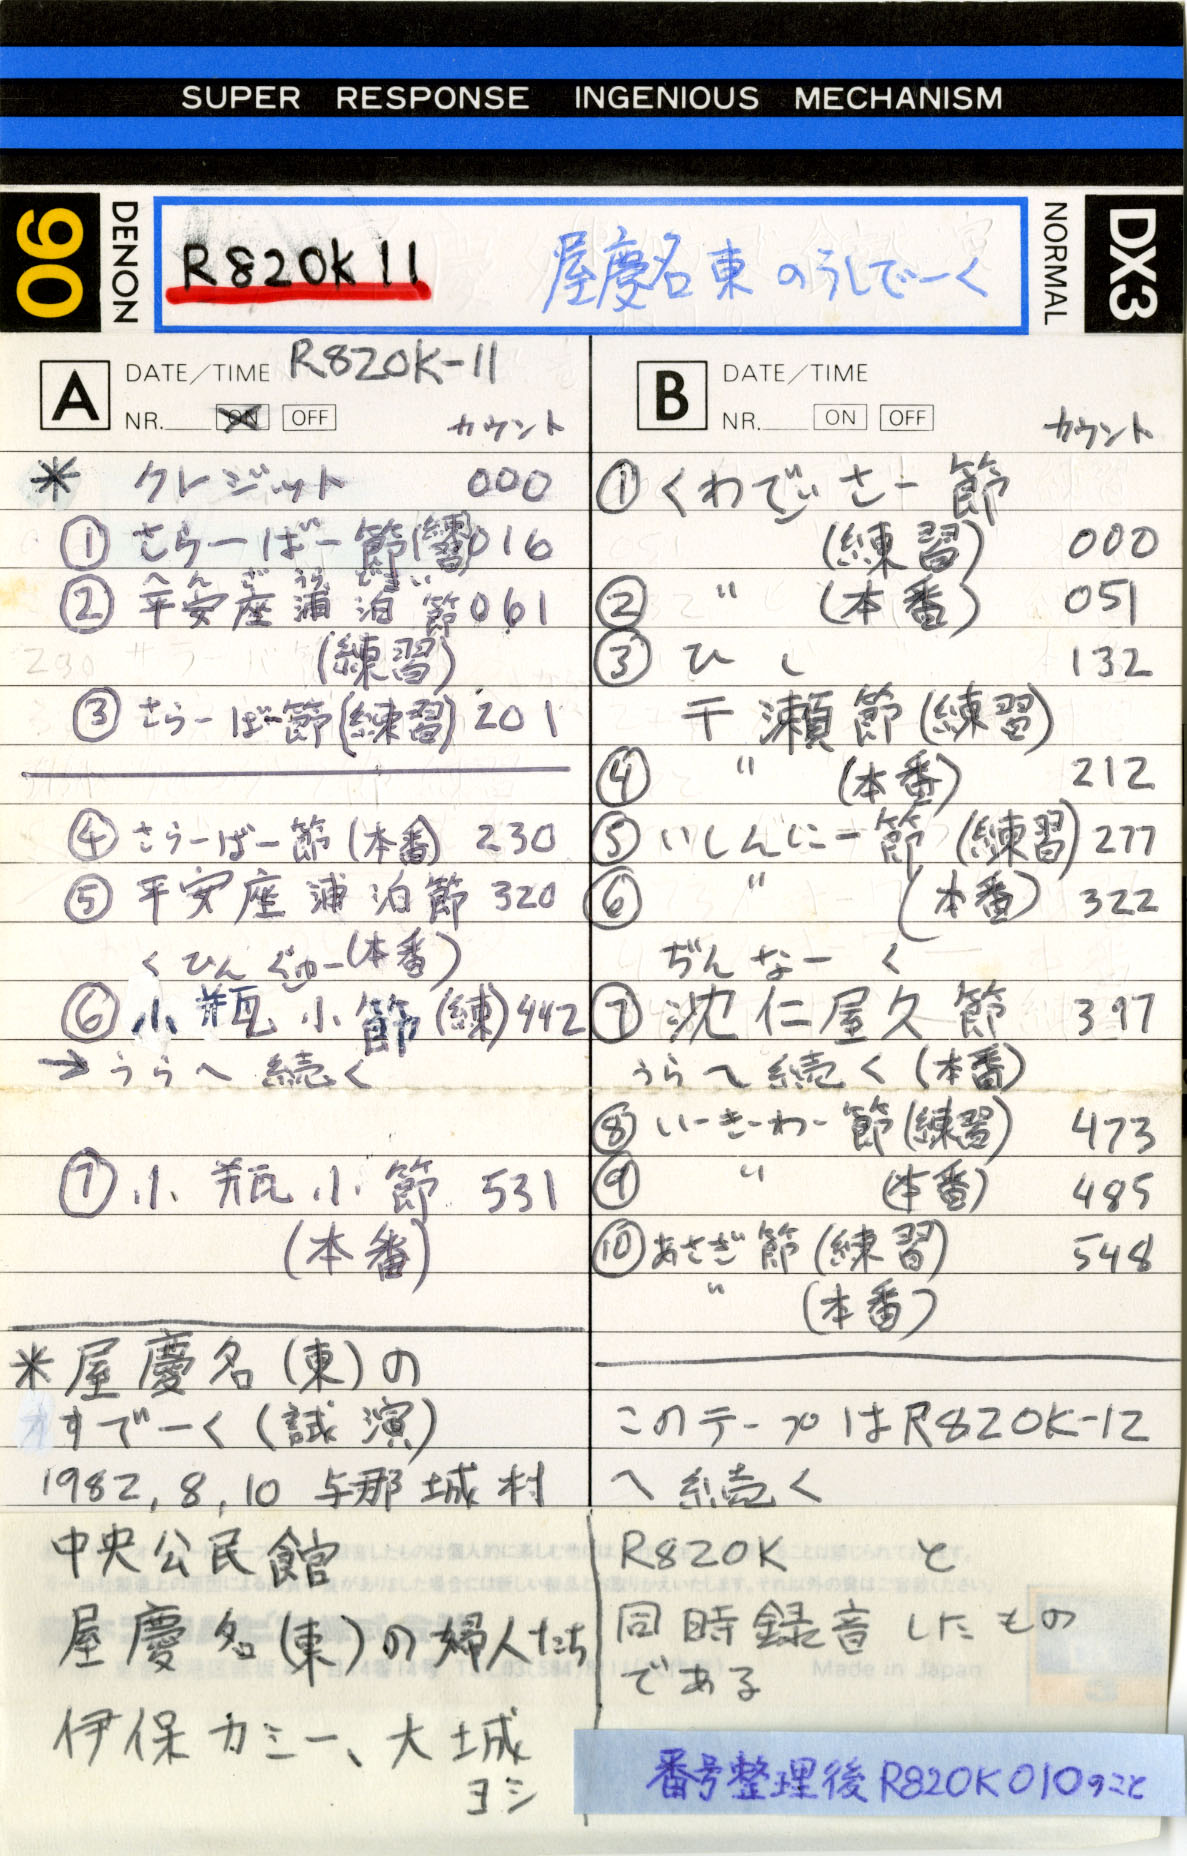 SUPER RESPONSE INGENIOUS MECHANISM
90
DENON
R820K11
屋慶名東のうしでーく
NORMAL
DX3
A
DATE/TIME R820K-11
NR. ON OFF
カウント
* クレジット 000
① さらーばー節(練習) 016
へんざうらどまい
② 平安座浦泊節 061
(練習)
③ さらーばー節(練習) 201
④ さらーばー節(本番) 230
⑤ 平安座浦泊節 320
(本番)
くびんぐゎー
⑥ 小瓶小節(練) 442
→うらへ続く
⑦ 小瓶小節 531
(本番)
*屋慶名(東)の
すでーく(試演)
1982,8,10 与那城村
中央公民館
屋慶名(東)の婦人たち
伊保カミー、大城
ヨシ
B
DATE/TIME
NR. ON OFF
カウント
① くわでぃさー節
(練習) 000
② 〃 (本番) 051
③ ひし 132
干瀬節(練習)
④ 〃 (本番) 212
⑤ いしんにー節(練習) 277
⑥ 〃 (本番) 322
ぢんなーく
⑦ 沈仁屋久節 397
うらへ続く(本番)
⑧ いーきーわー節(練習) 473
⑨ 〃 (本番) 485
⑩ あさぎ節(練習) 548
〃 (本番)
このテープはR820K-12
へ続く
R820K と
同時録音したもの
である
Made in Japan
番号整理後R820K010のこと